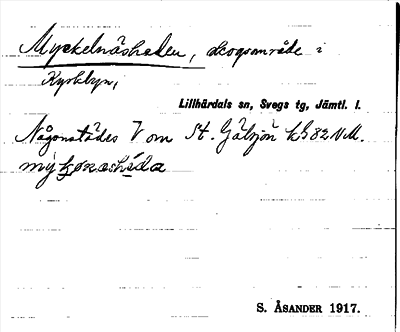 Myckelnäsheden, skogsområde i
Kyrkbyn,
Lillhärdals sn, Svegs tg, Jämtl. l.
Någonstädes V om St. Gåsjön kG 82 N.M.
S. ÅSANDER 1917.